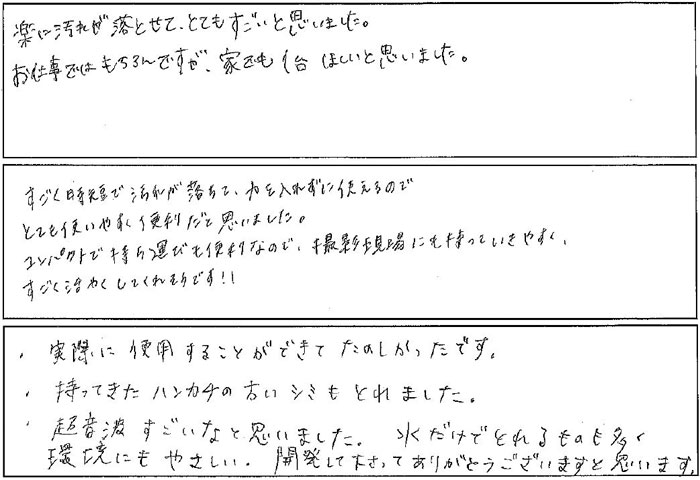 楽に汚れが落とせて、とてもすごいと思いました。
お仕事ではもちろんですが、家でも1台ほしいと思いました。
すごく時短で汚れが落ちて、力を入れずに使えるので
とても使いやすく便利だと思いました。
コンパクトで持ち運びも便利なので、撮影現場にも持っていきやすく、
すごく活やくしてくれそうです!!
・実際に使用することができてたのしかったです。
・持ってきたハンカチの古いシミもとれました。
・超音波すごいなと思いました。水だけでとれるものも多く
環境にもやさしい。開発して下さってありがとうございますと思います。